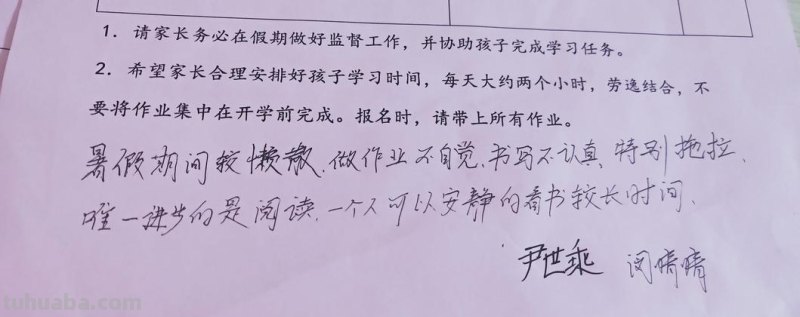 1. 请家长务必在假期做好监督工作，并协助孩子完成学习任务。
2. 希望家长合理安排好孩子学习时间，每天大约两个小时，劳逸结合，不
要将作业集中在开学前完成。报名时，请带上所有作业。
暑假期间较懒散，做作业不自觉，书写不认真，特别拖拉，
唯一进步的是阅读，一个人可以安静的看书较长时间。
尹世乘 闵晴晴
tuhuaba.com